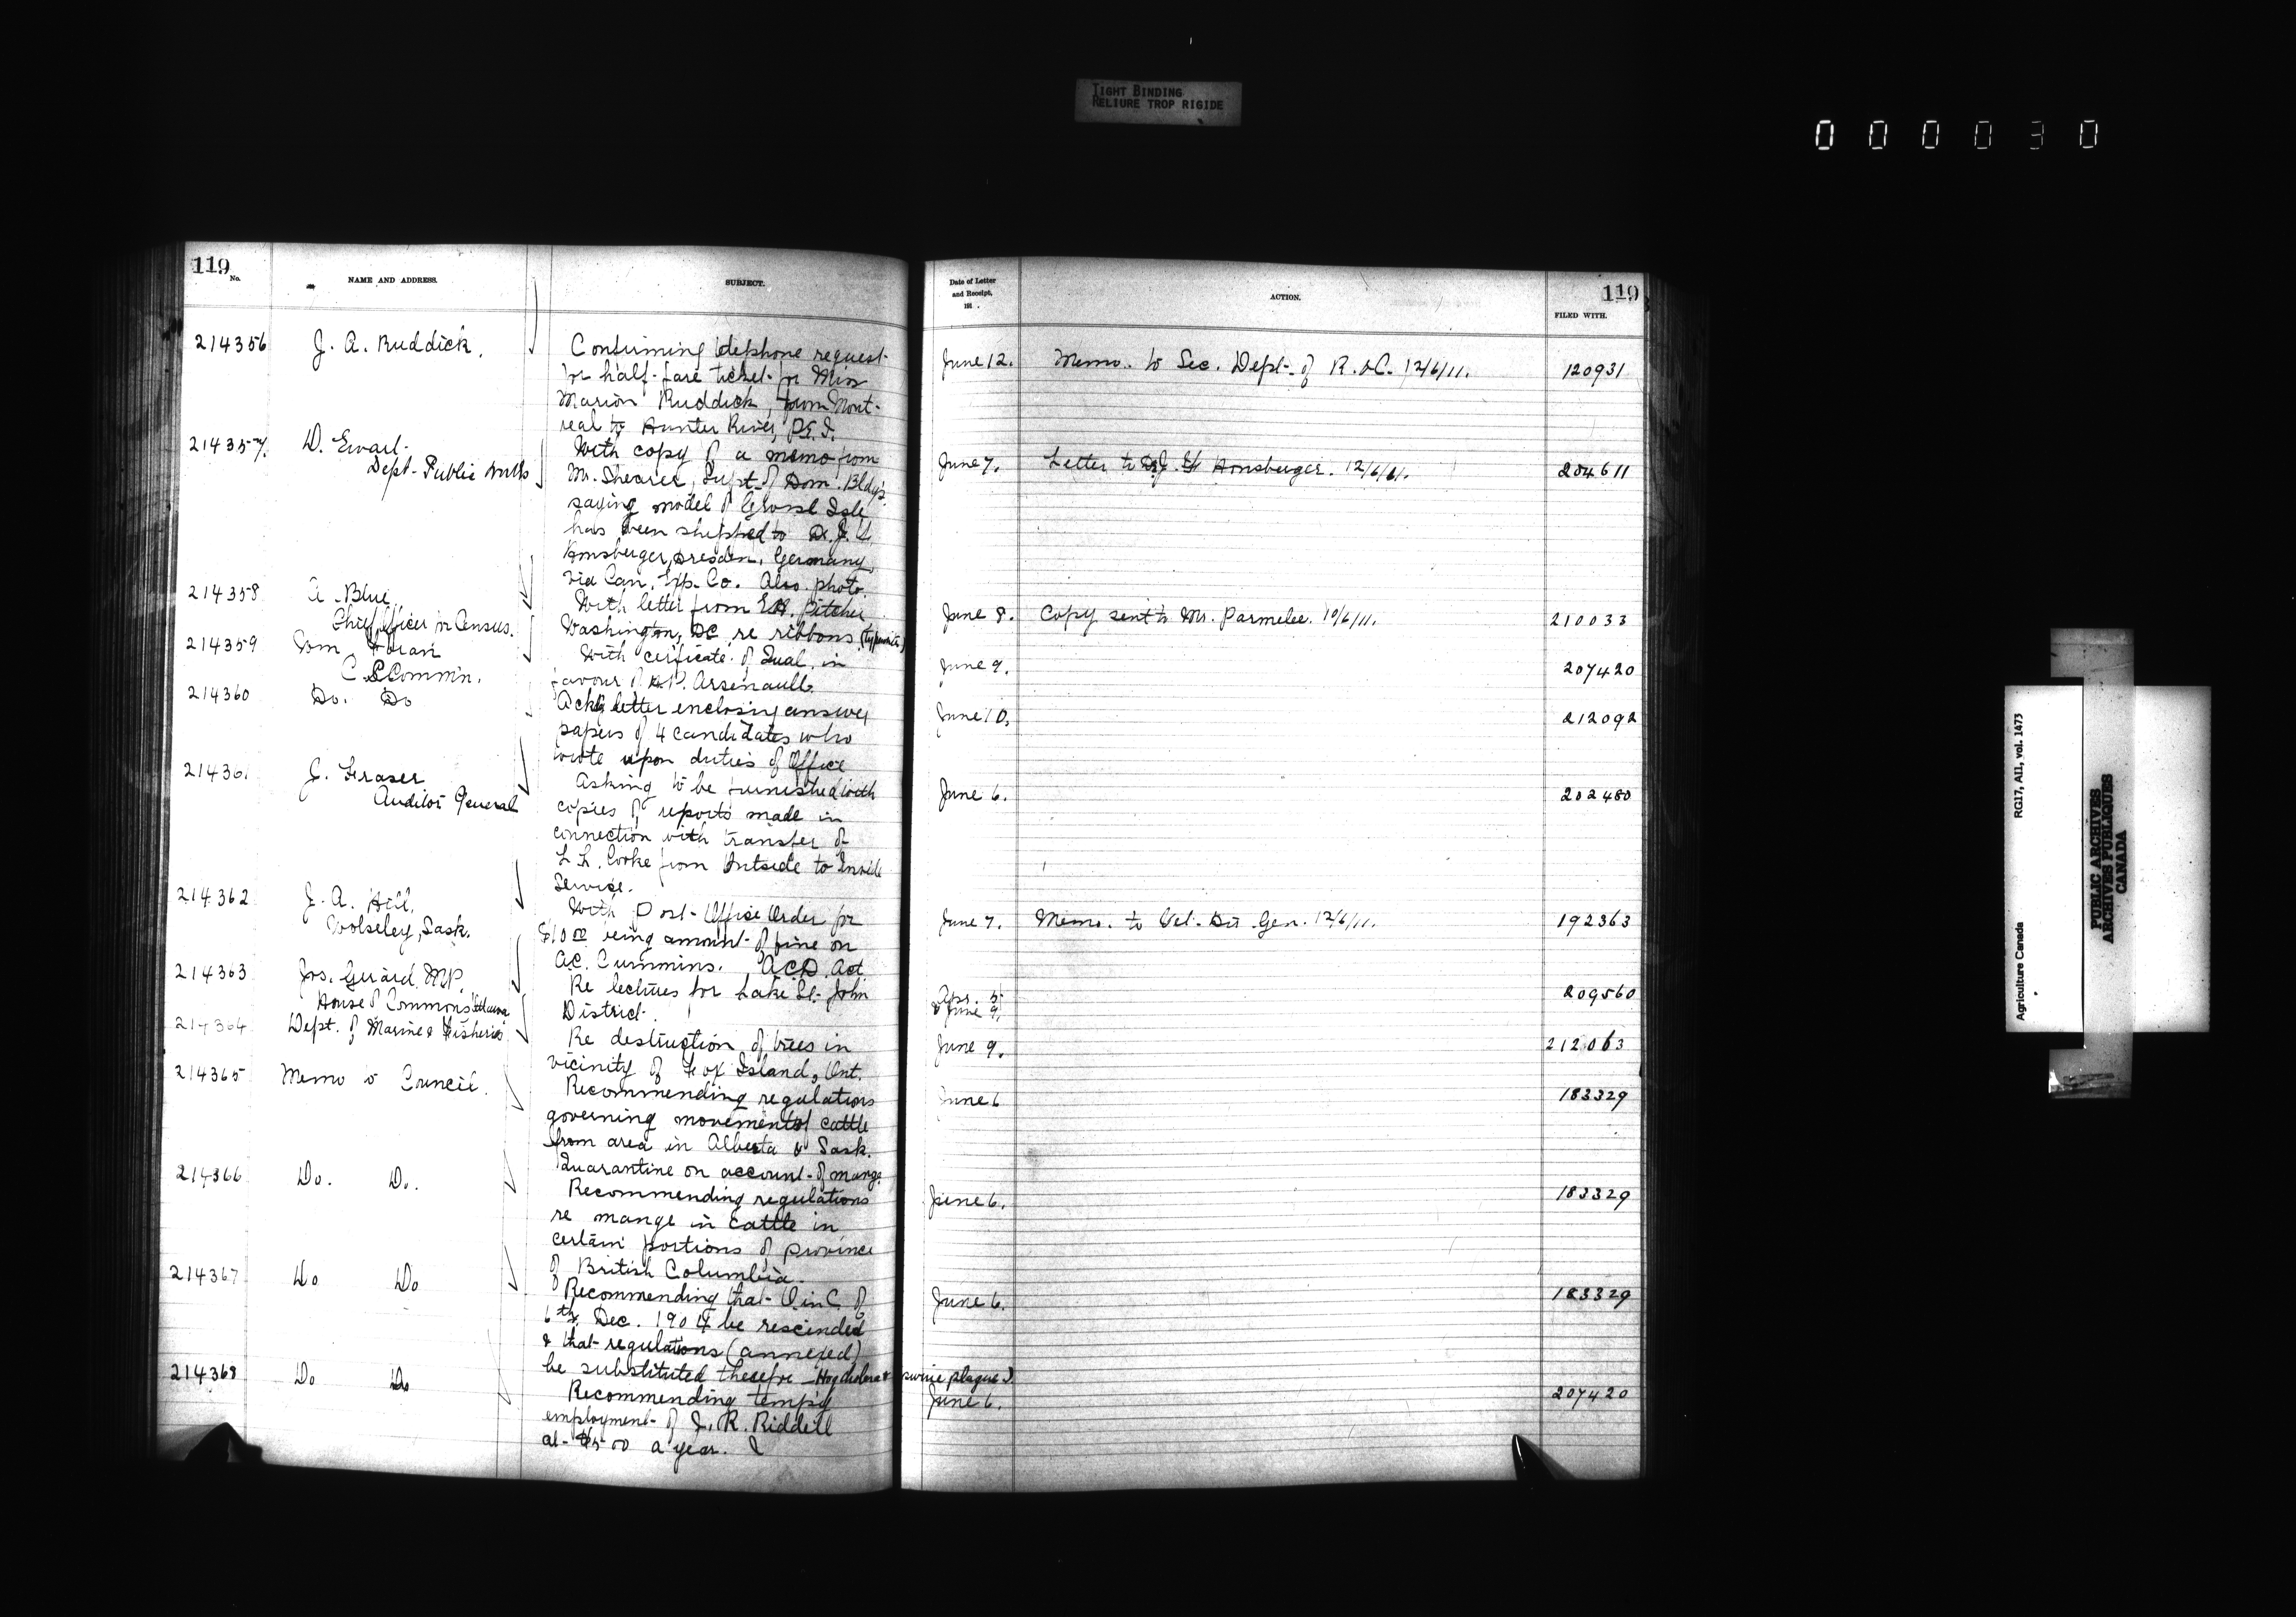 TIGHT BINDING
RELIURE TROP RIGIDE
0 0 0 0 3 0
119
No. NAME AND ADDRESS. SUBJECT.
Date of Letter and Receipt, 191 . ACTION. FILED WITH.
119
214356 J. A. Ruddick. Confirming telephone request
for half-fare ticket for Miss
Marion Ruddick, from Mont-
real to Hunter River, P.E.I.
June 12. Memo. to Sec. Dept. of R. & C. 12/6/11. 120931
214357. D. Ewart. With copy of a memo from
Dept. Public Works Mr. Shearer, Supt. of Dom. Bldgs
saying model of Grosse Isle
has been shipped to Dr. J. F.
Honsberger, Dresden, Germany,
via Can. Exp. Co. Also photo.
June 7. Letter to Dr. J. F. Honsberger. 12/6/11. 204611
214358 A. Blue, With letter from E.H. Pitcher
Chief Officer in Census. Washington, DC re ribbons (typewriter)
June 8. Copy sent to Mr. Parmelee. 10/6/11. 210033
214359 Wm Foran With cerficate of Qual. in
C.S. Commin. favour of P. Arsenault.
June 9. 207420
214360 Do. Do Ackg letter enclosing answer
papers of 4 candidates who
wrote upon duties of Office
June 10. 212092
214361 J. Fraser Asking to be furnished with
Auditor General copies of reports made in
connection with transfer of
Cooke from Outside to Inside
Service.
June 6. 202480
214362 J. A. Hill, With Post-Office Order for
Wolseley, Sask. $10.00 being amount of fine on
A.C. Cummins. A.C.D. Act.
June 7. Memo. to Vet. Dir. Gen. 12/6/11. 192363
214363 Jos. Girard, MP. Re lectures for Lake St. John
House of Commons Ottawa District.
Apr. 5
& June 9. 209560
214364 Dept. of Marine & Fisheries Re destruction of trees in
vicinity of Fox Island, Ont.
June 9. 212063
214365 Memo to Council. Recommending regulations
governing movement of cattle
from area in Alberta & Sask.
Quarantine on account of mange.
June 6 183329
214366 Do. Do. Recommending regulations
re mange in Cattle in
certain portions of province
of British Columbia.
June 6. 183329
214367 Do Do Recommending that O. in C. of
6th. Dec. 1904 be rescinded
& that regulations (annexed)
be substituted therefor - Hog cholera & swine plague
June 6. 183329
214368 Do Do Recommending temp'y
employment of J. R. Riddell
at $500 a year.
June 6. 207420
Agriculture Canada RG17, AII, vol. 1473
PUBLIC ARCHIVES
ARCHIVES PUBLIQUES
CANADA